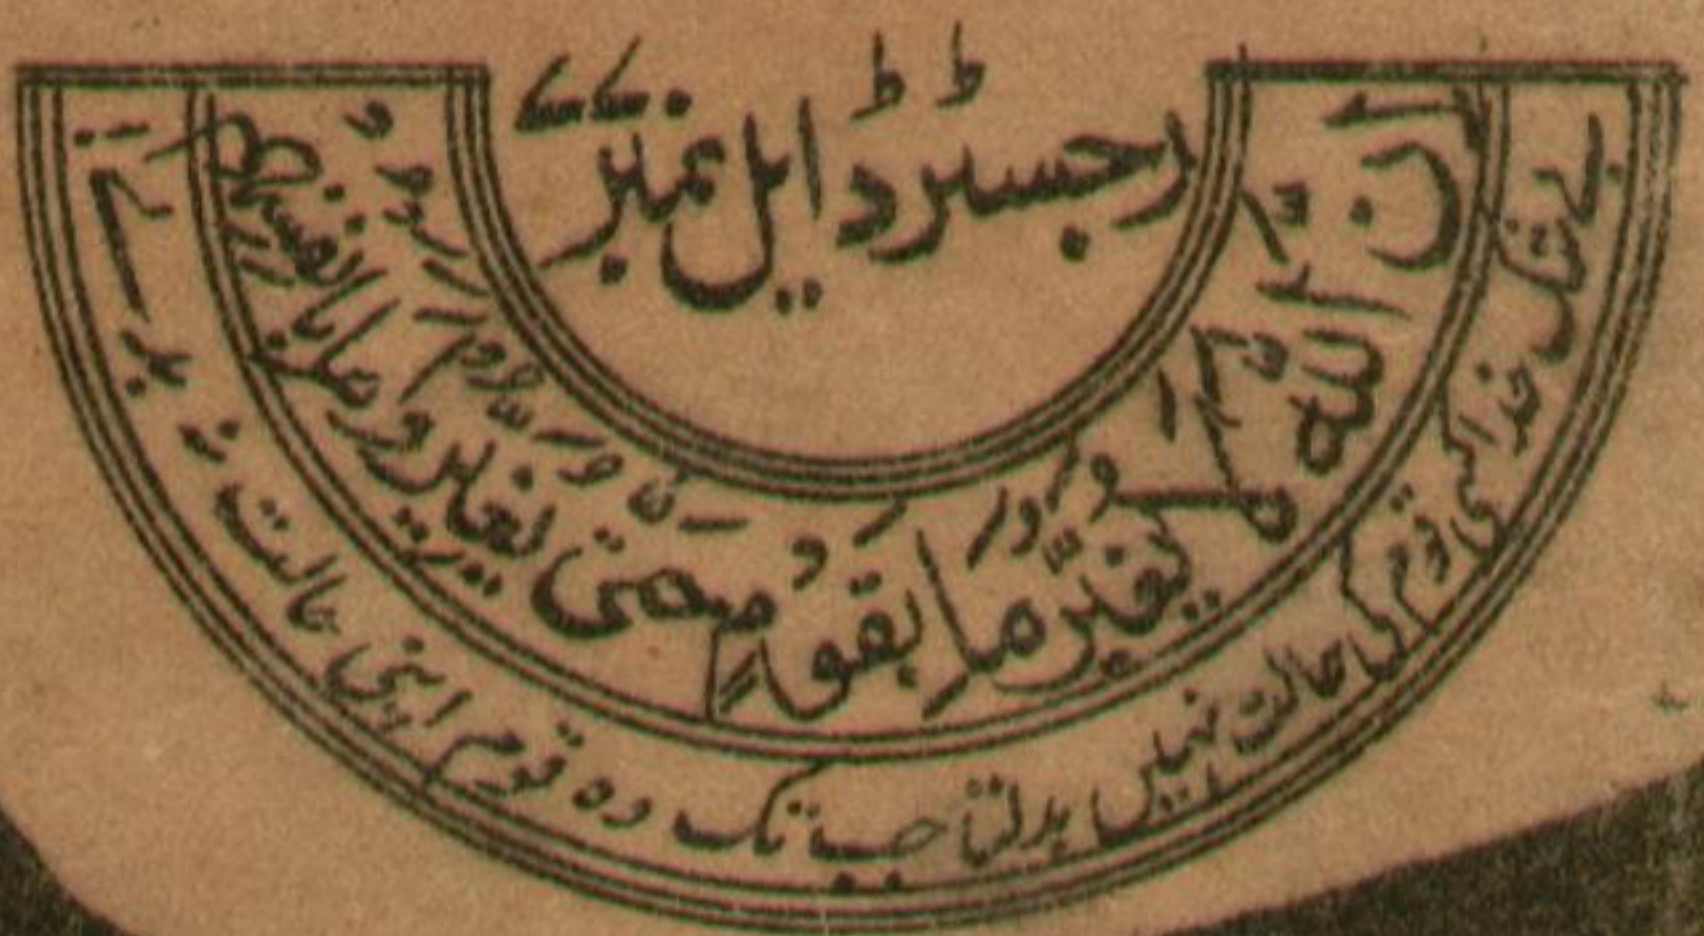 رجسٹرڈ ایل نمبر
اِنَّ اللّٰهَ لَا یُغَیِّرُ مَا بِقَوْمٍ حَتّٰی یُغَیِّرُوْا مَا بِاَنْفُسِهِمْ
بے شک خدا کسی قوم کی حالت نہیں بدلتا جب تک وہ قوم اپنی حالت نہ بدلے